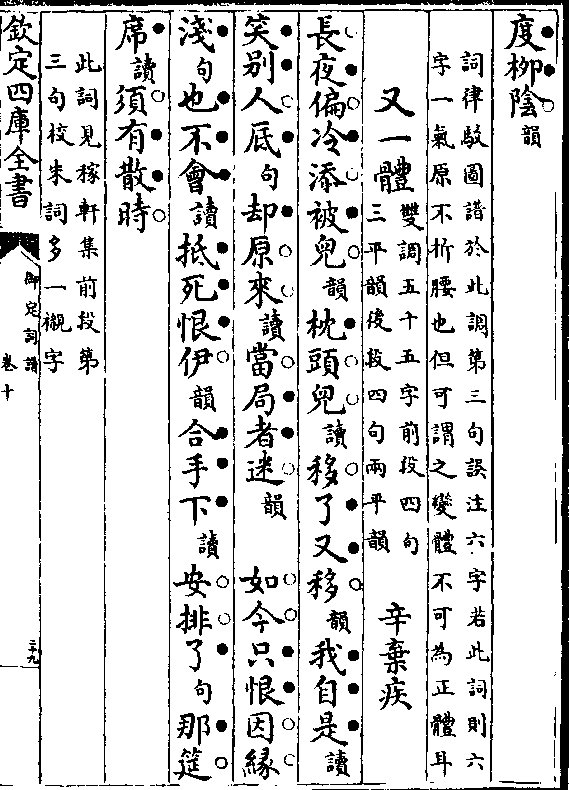 度栁陰韻
詞律駁圖譜於此調第三句誤注六字若此詞則六
字一氣原不折腰也但可謂之變體不可為正體耳
又一體 雙調五十五字前段四句
三平韻後段四句兩平韻 辛棄疾
長夜偏冷添被兒韻枕頭兒讀移了又移韻我自是讀
笑别人底句却原來讀當局者迷韻 如今只恨因縁
淺句也不會讀抵死恨伊韻合手下讀安排了句那筵
席讀須有散時韻
此詞見稼軒集前段第
三句校朱詞多一襯字
欽定四庫全書
御定詞譜
卷十
三九